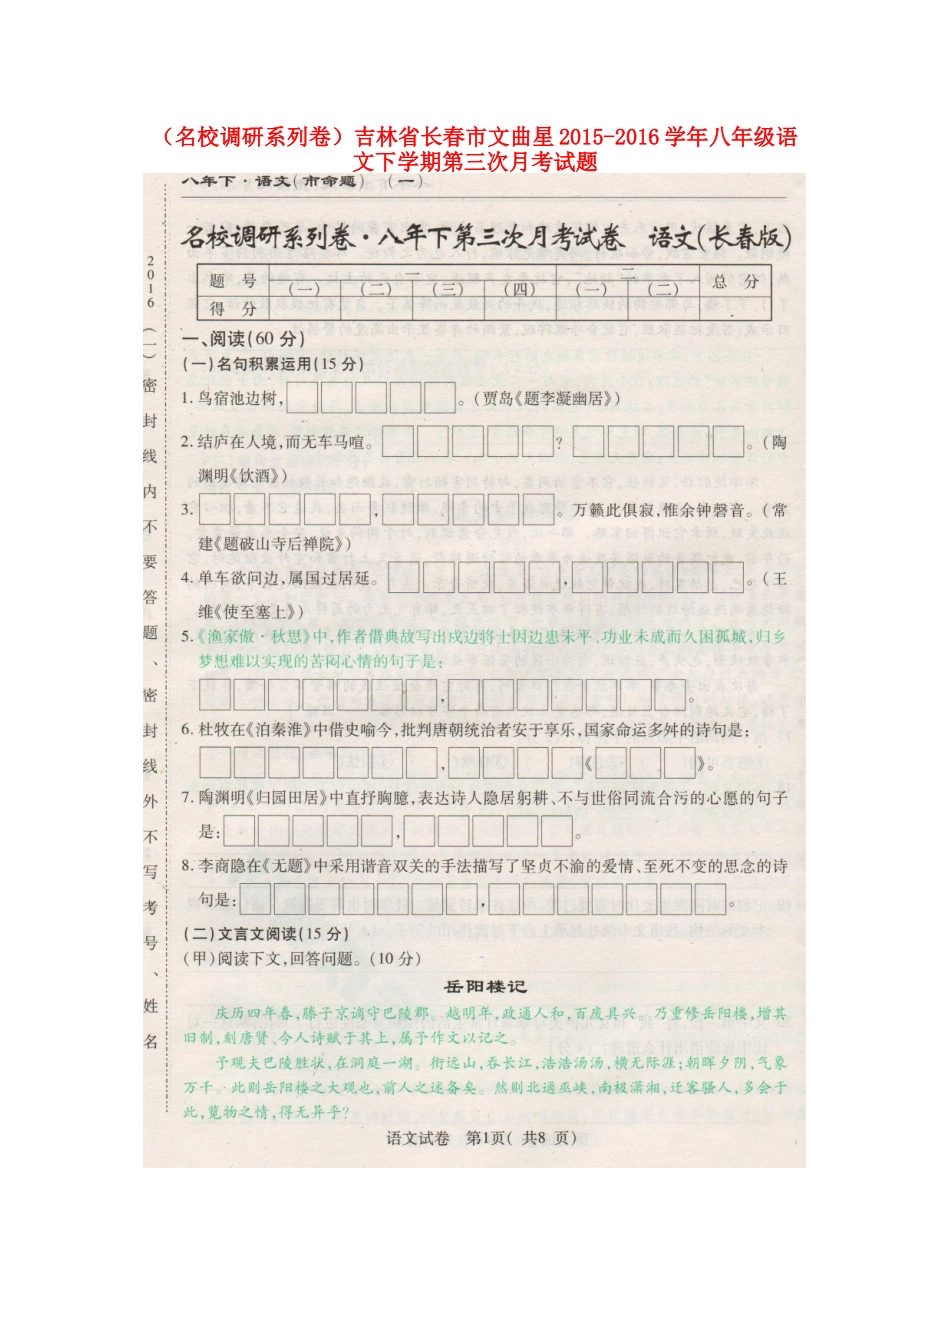 （名校调研系列卷）吉林省长春市文曲星 2015-2016 学年八年级语
文下学期第三次月考试题
八年下·语文(市命题) (一)
名校调研系列卷·八年下第三次月考试卷 语文(长春版)
题 号 一 二 总 分
(一) (二) (三) (四) (一) (二)
得 分
一、阅读(60 分)
(一)名句积累运用(15 分)
1.鸟宿池边树，□□□□□。(贾岛《题李凝幽居》)
2.结庐在人境,而无车马喧。□□□□□？□□□□□。(陶
渊明《饮酒》)
3.□□□□□，□□□□□。万籁此俱寂,惟余钟磬音。(常
建《题破山寺后禅院》)
4.单车欲问边,属国过居延。□□□□□，□□□□□。(王
维《使至塞上》)
5.《渔家傲·秋思》中,作者借典故写出戍边将士因边患未平、功业未成而久困孤城,归乡
梦想难以实现的苦闷心情的句子是：
□□□□□□□，□□□□□□□。
6.杜牧在《泊秦淮》中借史喻今,批判唐朝统治者安于享乐,国家命运多舛的诗句是：
□□□□□□□，□□□□《□□□》。
7.陶渊明《归园田居》中直抒胸臆,表达诗人隐居躬耕、不与世俗同流合污的心愿的句子
是：□□□□□，□□□□□。
8.李商隐在《无题》中采用谐音双关的手法描写了坚贞不渝的爱情、至死不变的思念的诗
句是：□□□□□□□，□□□□□□□。
(二)文言文阅读(15 分)
(甲)阅读下文,回答问题。(10 分)
岳阳楼记
庆历四年春,滕子京谪守巴陵郡。越明年,政通人和,百废具兴。乃重修岳阳楼,增其
旧制,刻唐贤、今人诗赋于其上,属予作文以记之。
予观夫巴陵胜状,在洞庭一湖。衔远山,吞长江,浩浩汤汤,横无际涯;朝晖夕阴,气象
万千。此则岳阳楼之大观也,前人之述备矣。然则北通巫峡,南极潇湘,迁客骚人,多会于
此,览物之情,得无异乎?
语文试卷 第1页( 共8 页)
2016(一)密封线内不要答题、密封线外不写考号、姓名